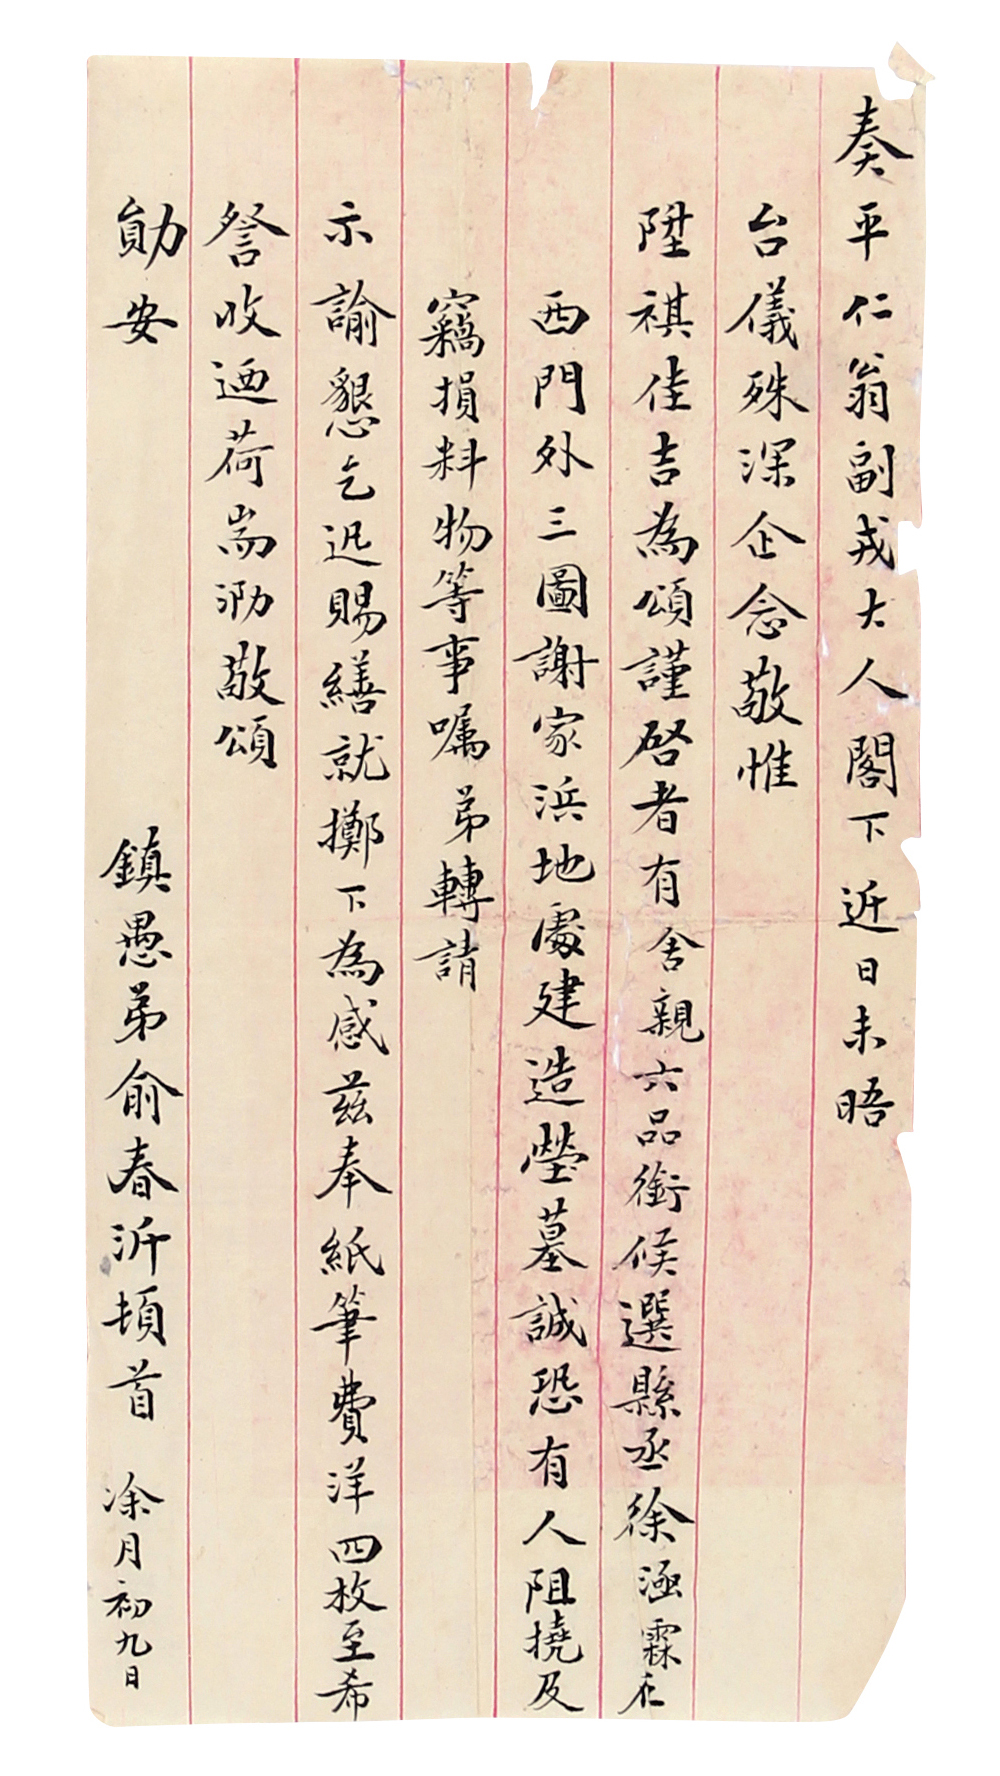 奏平仁翁副戎大人閣下近日未晤
台儀殊深企念敬惟
陞祺佳吉為頌謹啓者有舍親六品銜候選縣丞徐涵霖在
西門外三圖謝家浜地處建造塋墓誠恐有人阻撓及
竊損料物等事囑弟轉請
示諭懇乞迅賜繕就擲下為感茲奉紙筆費洋四枚至希
詧收迺荷耑泐敬頌
勛安
鎮愚弟俞春沂頓首 涂月初九日